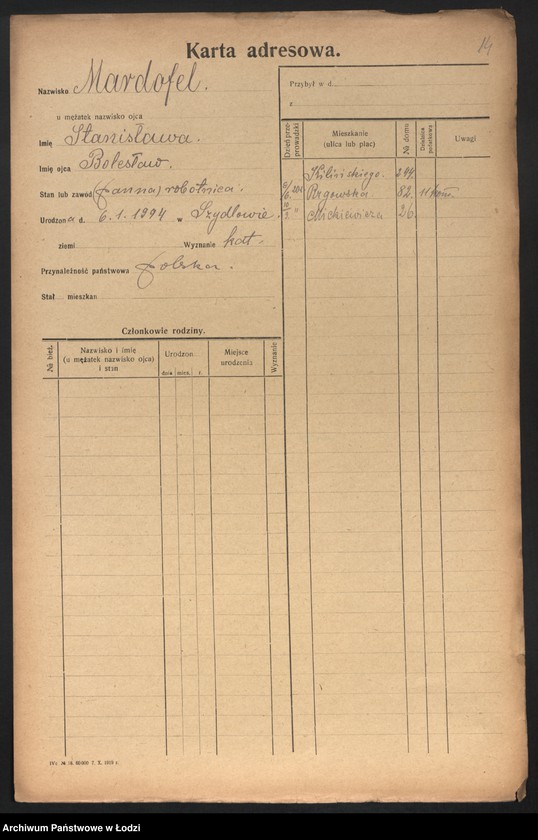 14
Karta adresowa.
Nazwisko Mardofel.
u mężatek nazwisko ojca
Imię Stanisława.
Imię ojca Bolesław.
Stan lub zawód (panna) robotnica.
Urodzona d. 6.1. w Szydłowie.
ziemi Wyznanie kat.
Przynależność państwowa polska.
Stał. mieszkan.
Przybył w d.
z
Dzień przeprowadzki
Mieszkanie
(ulica lub plac)
№ domu
Dzielnica podatkowa
Uwagi
Kilińskiego. 244.
Rzgowska 82. 11 kom.
Mickiewicza 26.
Członkowie rodziny.
№ bież.
Nazwisko i imię
(u mężatek nazwisko ojca)
i stan
Urodzon.
dnia mies. r.
Miejsce
urodzenia
Wyznanie
Archiwum Państwowe w Łodzi